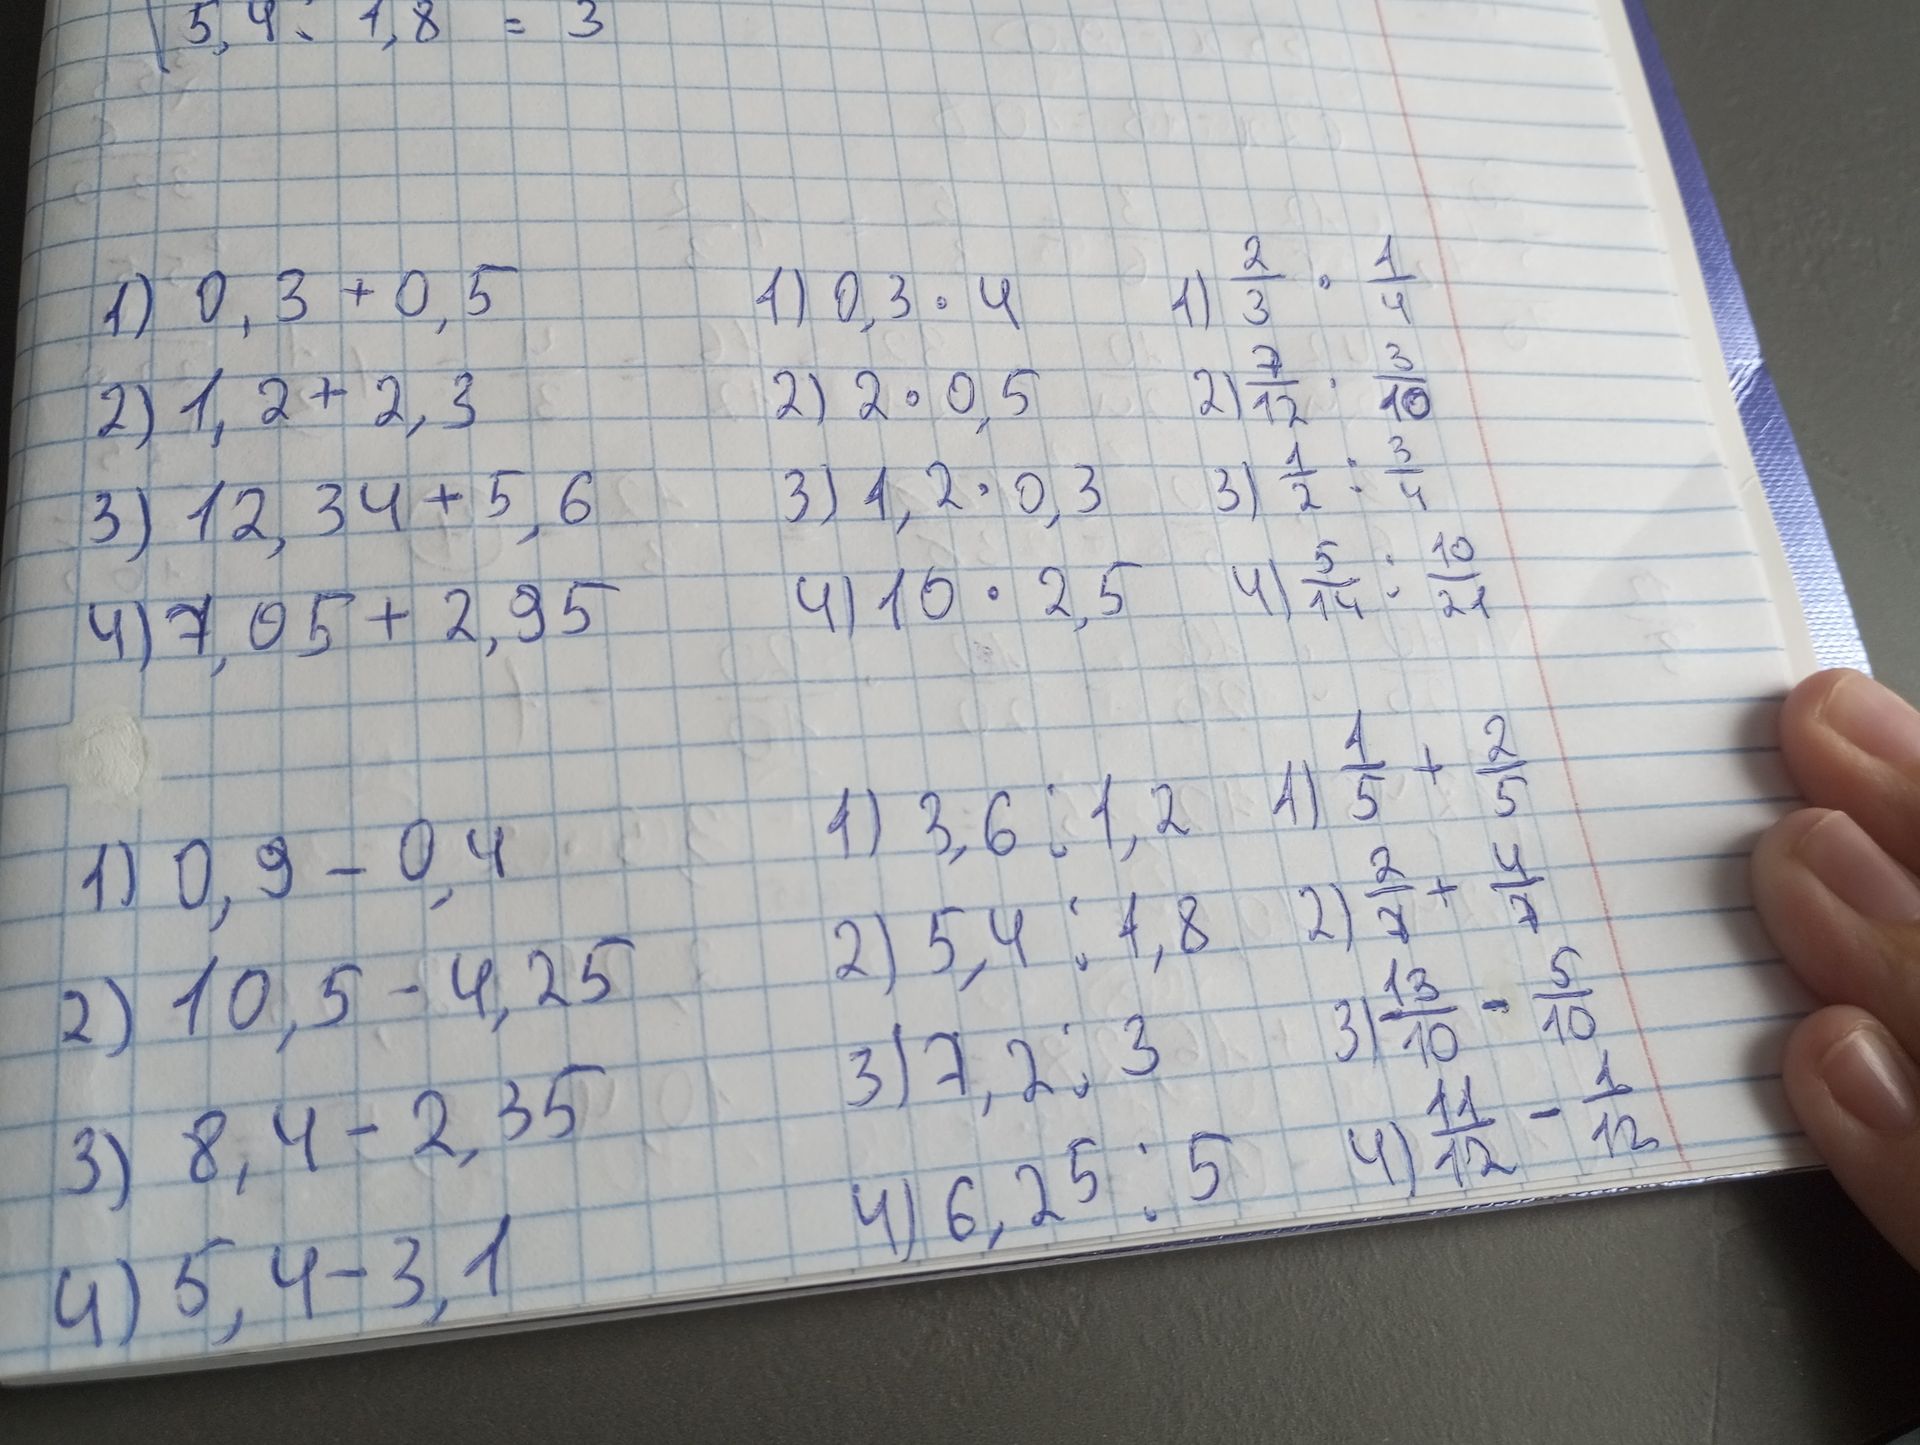 5,4 : 1,8 = 3
1) 0,3 + 0,5
2) 1,2 + 2,3
3) 12,34 + 5,6
4) 7,05 + 2,95
1) 0,3 · 4
2) 2 · 0,5
3) 1,2 · 0,3
4) 10 · 2,5
1) 2/3 · 1/4
2) 7/12 · 3/10
3) 1/2 : 3/4
4) 5/14 : 10/21
1) 0,9 - 0,4
2) 10,5 - 4,25
3) 8,4 - 2,35
4) 5,4 - 3,1
1) 3,6 : 1,2
2) 5,4 : 1,8
3) 7,2 : 3
4) 6,25 : 5
1) 1/5 + 2/5
2) 2/7 + 4/7
3) 13/10 - 5/10
4) 11/12 - 1/12